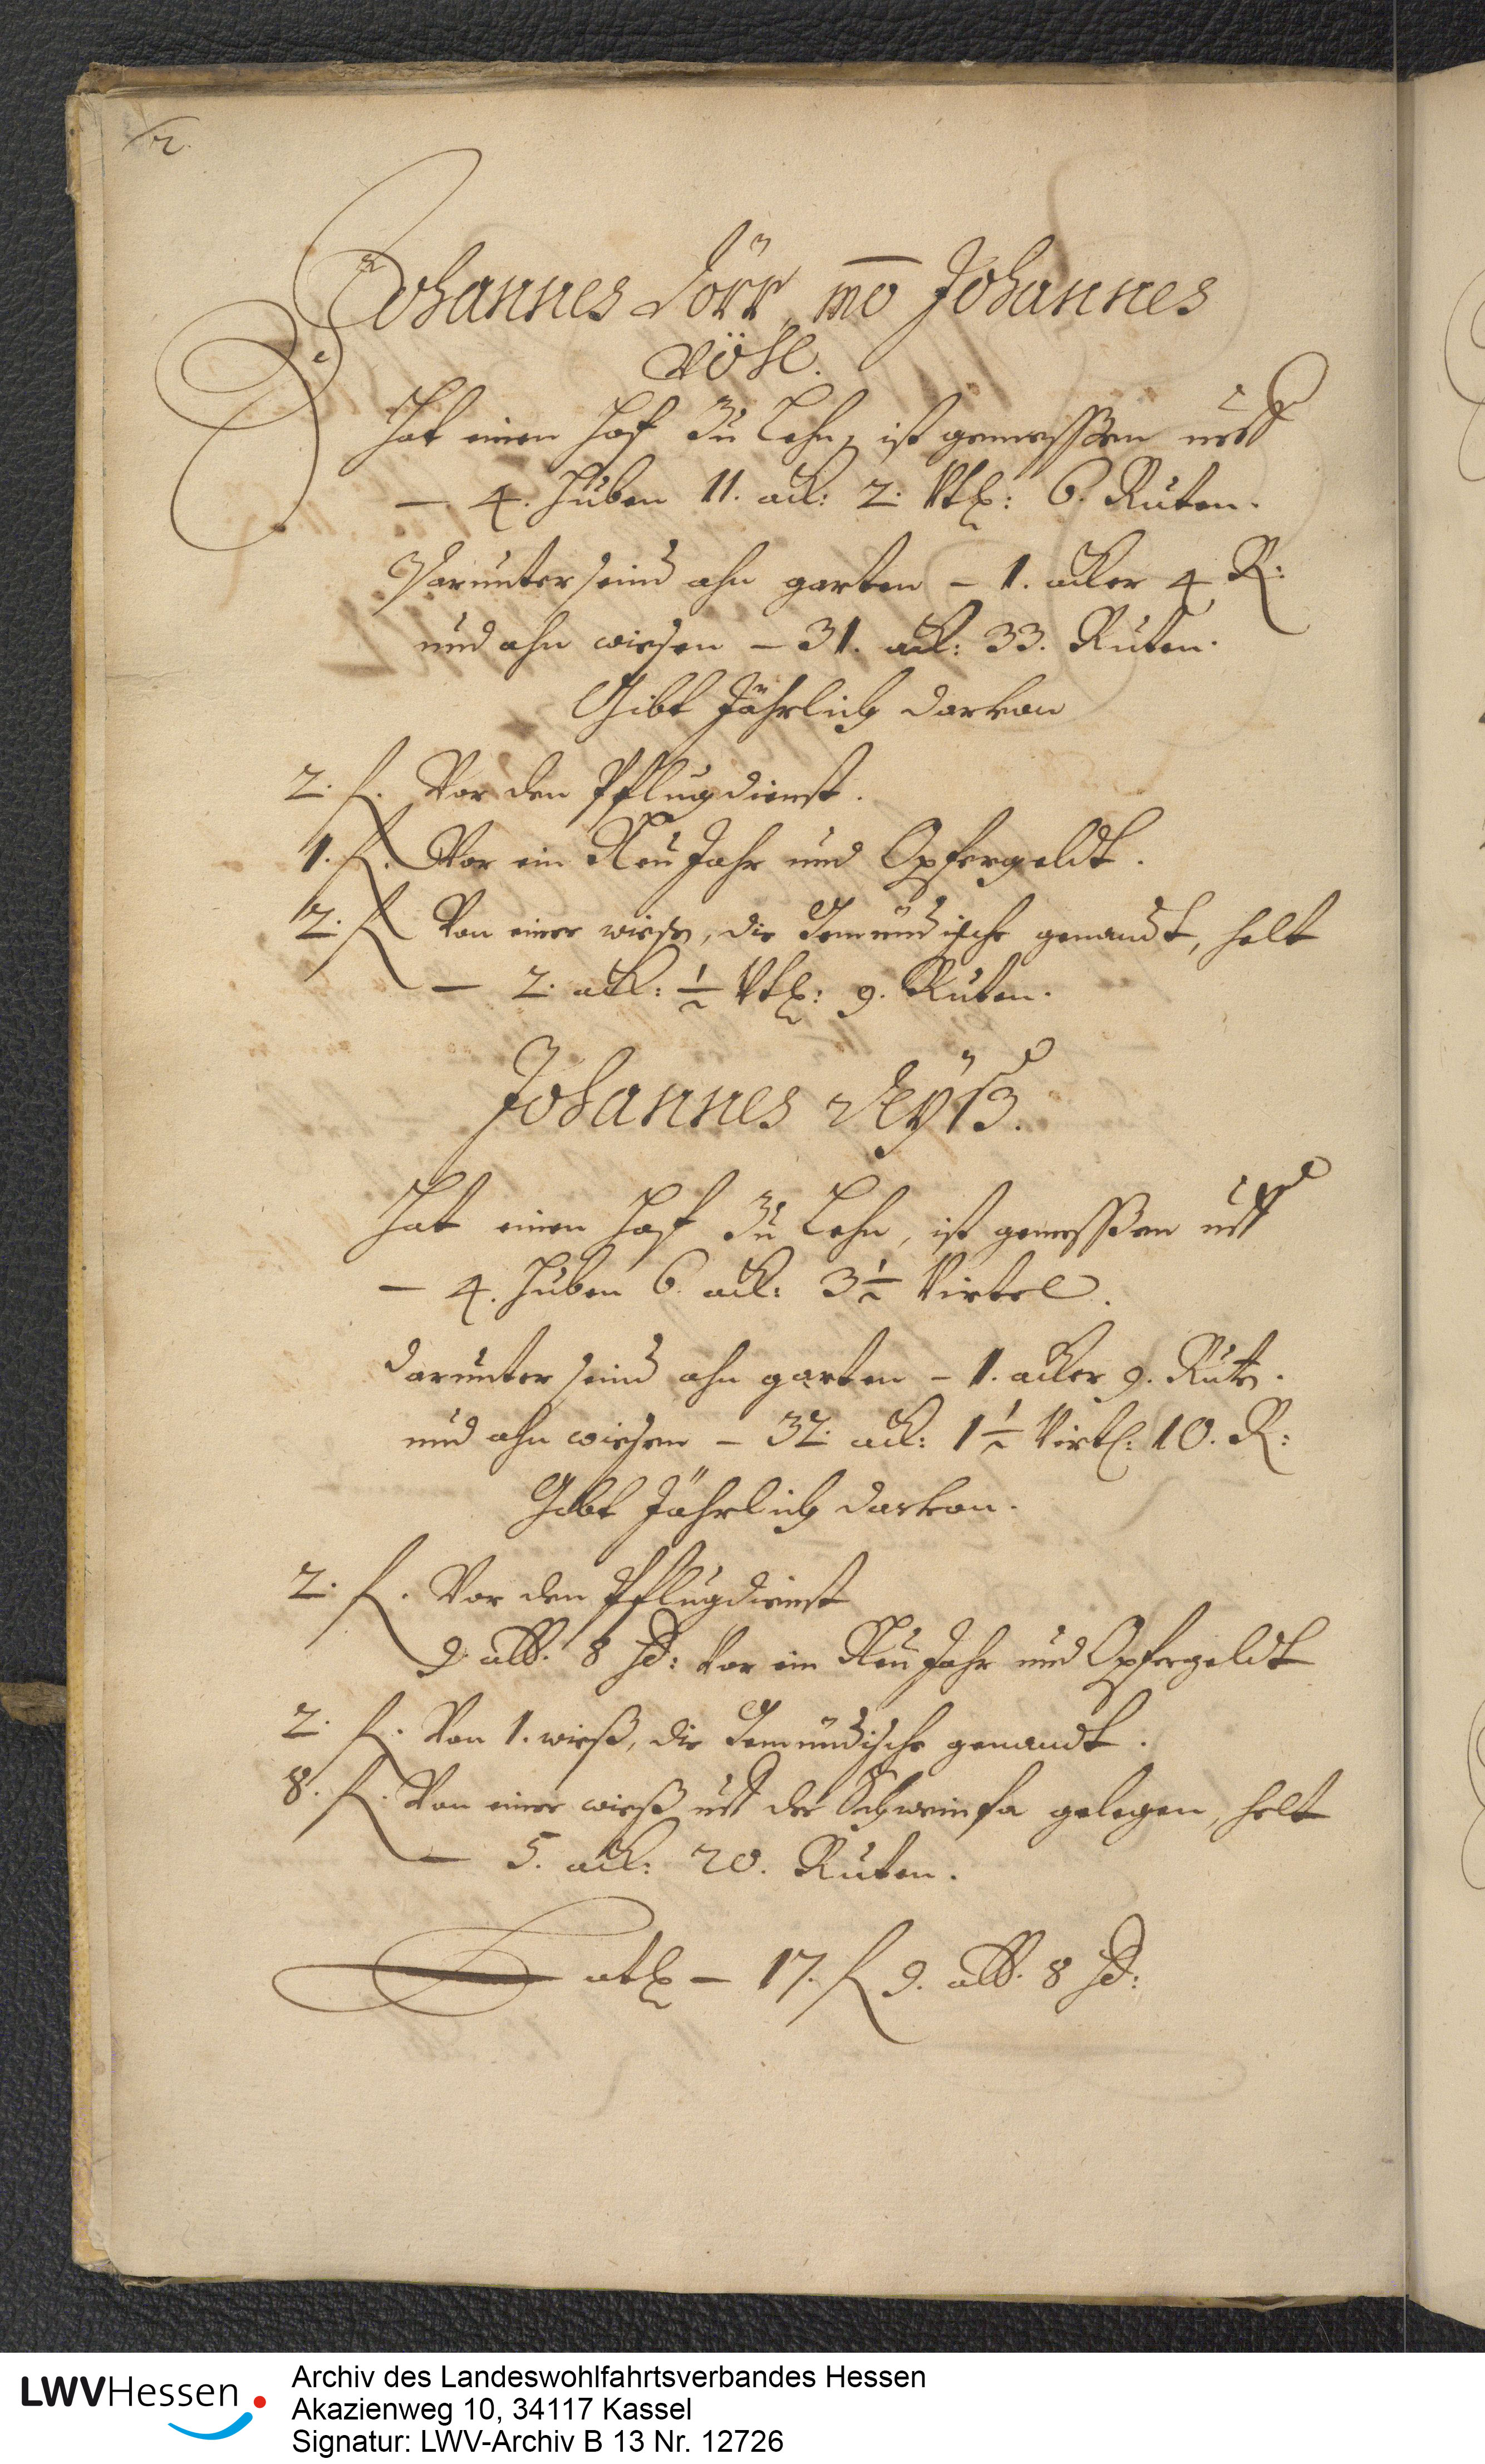 2.
Johannes Dörr, mo Johannes
Völl.
Hat einen Hoff Zu Lehn, ist gemessen uff
— 4. Huben 11. ack: 2. Vtl: 6. Ruten.
Darunter seind ahn garten — 1. acker 4 R:
und ahn wiesen — 31. ack: 33. Ruten.
Gibt Jährlich darvon
2. fl. Vor den Pflugdienst.
1. fl. Vor ein Neu Jahr und Opfergeldt.
2. fl Von einer wiesen, die Gemündische genandt, helt
— 2. ack: ½ Vtl: 9. Ruten.
Johannes Weyß.
Hat einen Hoff Zu Lehn, ist gemessen uff
— 4. Huben 6. ack: 3½ Virtel.
darunter seind ahn garten — 1. acker 9. Ruten.
und ahn wiesen — 32. ack: 1½ Virtl: 10. R:
Gibt Jährlich darvon.
2. fl. Vor den Pflugdienst
9 alb. 8 hd: Vor ein Neu Jahr und Opfergeldt
2. fl. Von 1. wieß, die Gemündische genandt.
8. fl. Von einer wieß uff der Schweinfa gelegen, helt
— 5. ack: 20. Ruten.
Latl — 17. fl 9. alb. 8 hd:
LWVHessen
Archiv des Landeswohlfahrtsverbandes Hessen
Akazienweg 10, 34117 Kassel
Signatur: LWV-Archiv B 13 Nr. 12726